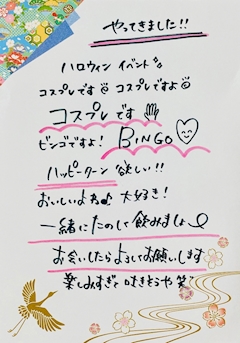 やってきました!!
ハロウィン イベント
コスプレです コスプレですよ
コスプレです
ビンゴですよ! BINGO
ハッピーターン 欲しい!!
おいしいよね 大好き!
一緒にたのしく飲みましょ
お会いしたらよろしくお願いします
楽しみすぎて吐きそうや 笑